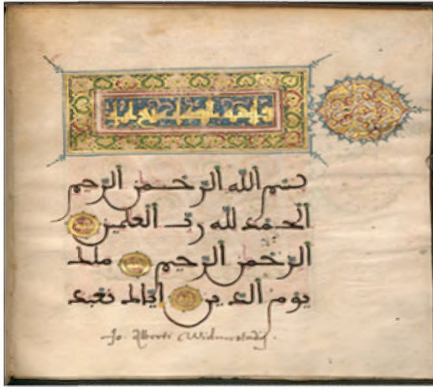 بسم الله الرحمن الرحيم
الحمد لله رب العلمين
الرحمن الرحيم ملك
يوم الدين اياك نعبد
Jo. Alberti Widmestadij.